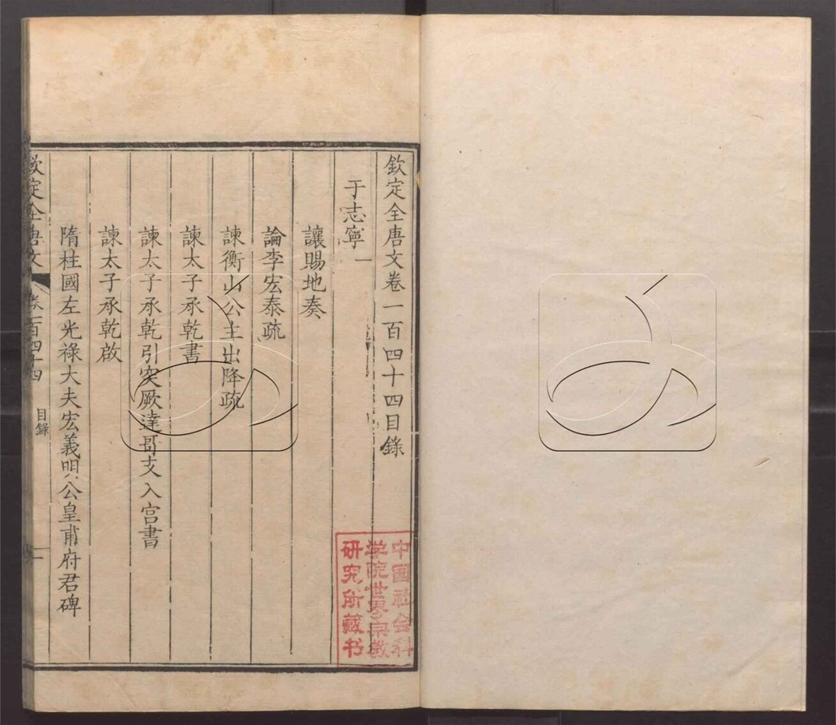 欽定全唐文卷一百四十四目錄
于志寧一
讓賜地奏
論李宏泰疏
諫衡山公主出降疏
諫太子承乾書
諫太子承乾引突厥達哥支入宮書
諫太子承乾啟
隋柱國左光祿大夫宏義明公皇甫府君碑
欽定全唐文 卷一百四十四 目錄 一
中国社会科
学院世界宗教
研究所藏书